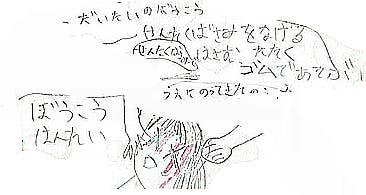 だいたいのぼうこう
せんたくばさみをなげる
せんたくばさみ
はさむ たたく
ゴムであそぶ
うえにのってきたの
ぼうこう
はんたい